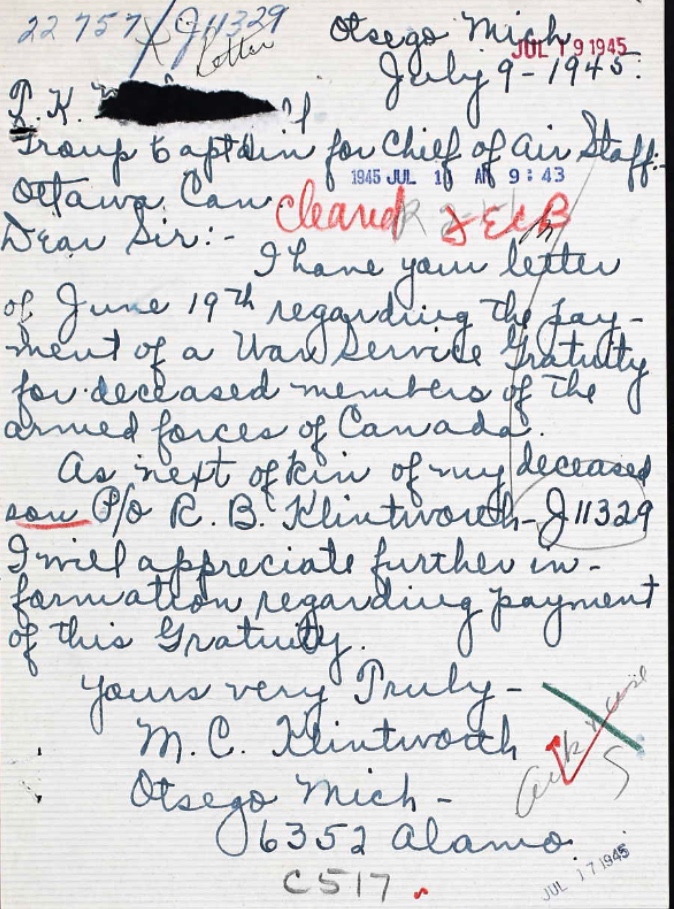 22757 / J11329
Letter
Otsego Mich.
JUL 19 1945
July 9-1945.
T. K.
Group Captain for Chief of Air Staff:-
1945 JUL 1 AM 9:43
Ottawa Can
Cleared
Dear Sir:-
I have your letter
of June 19th regarding the pay-
ment of a War Service Gratuity
for deceased members of the
armed forces of Canada.
As next of kin of my deceased
son P/O R. B. Klintworth-J11329
I will appreciate further in-
formation regarding payment
of this Gratuity.
Yours very Truly-
M. C. Klintworth
Otsego Mich-
6352 Alamo.
C517
JUL 17 1945